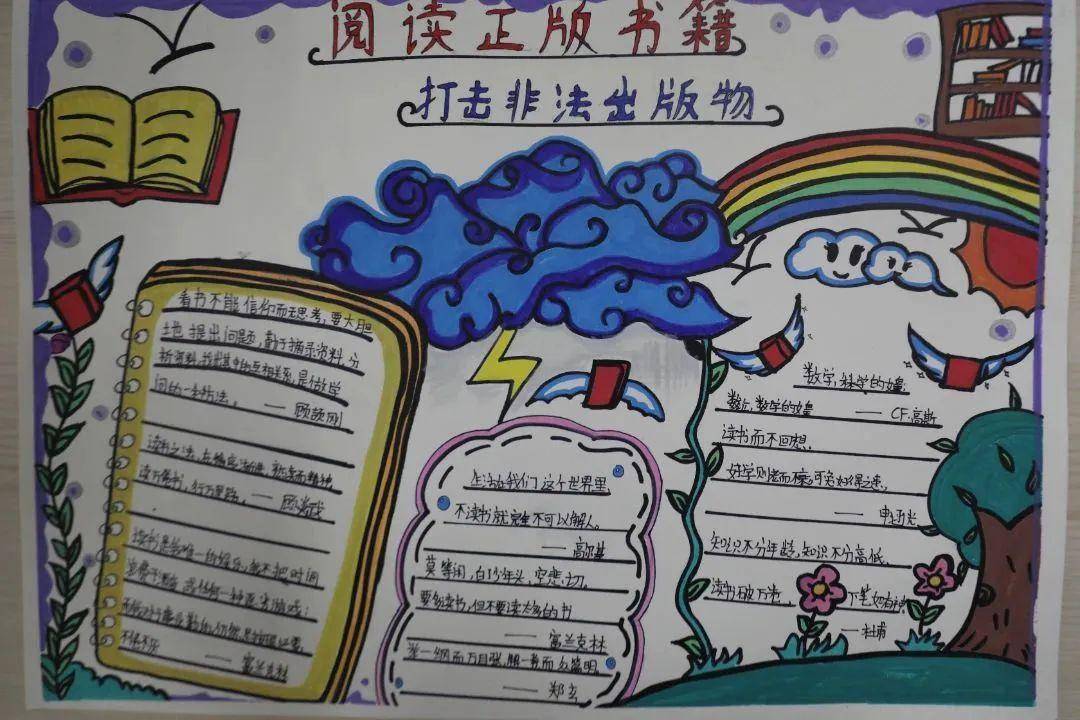 阅读正版书籍
打击非法出版物
看书不能信仰而无思考，要大胆
地提出问题，勤于摘录资料，分
析资料，找出其中的相互关系，是做学
问的一种方法。
—— 顾颉刚
读书之法，在循序渐进，熟读而精思
读万卷书，行万里路。——
读书是我唯一的娱乐，我不把时间
浪费于酒店
—— 富兰克林
生活在我们这个世界里
不读书就完全不可以解人。
—— 高尔基
莫等闲，白了少年头，空悲切。
要多读书，但不要读太多的书
—— 富兰克林
举一纲而万目张，解一卷而众篇明。
—— 郑玄
数学，科学的女皇
数论，数学的女皇 —— C.F.高斯
读书而不回想，
好学则老而不衰，可免好得之患。
—— 申
知识不分年龄，知识不分高低。
读书破万卷 下笔如有神
—— 杜甫